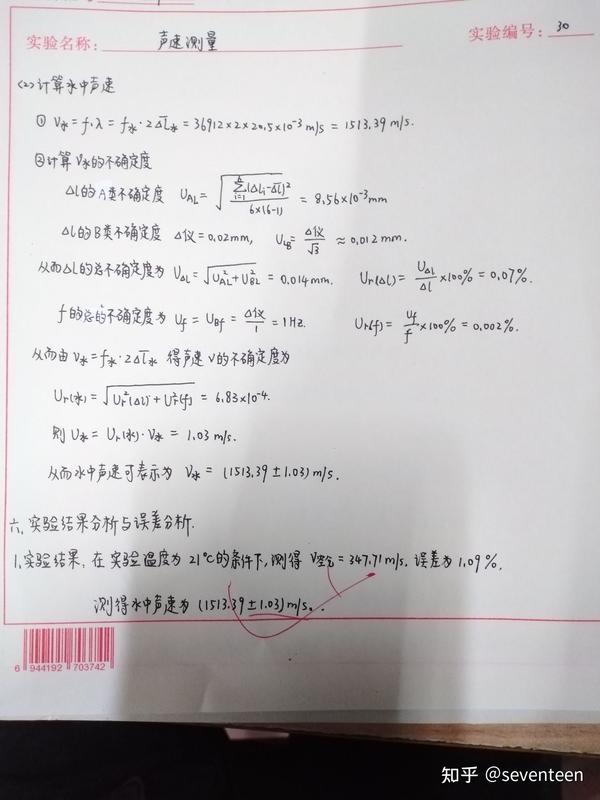 实验名称： 声速测量
实验编号： 30
(2) 计算水中声速
① V水 = f·λ = f水·2Δl̄水 = 36912×2×20.5×10⁻³ m/s = 1513.39 m/s.
②计算V水的不确定度
Δl的A类不确定度 U_AL = √(Σ(Δli-Δl̄)²/6×(6-1)) = 8.56×10⁻³mm
Δl的B类不确定度 Δ仪=0.02mm, U_LB = Δ仪/√3 ≈ 0.012 mm.
从而Δl的总不确定度为 U_ΔL = √(U²_AL+U²_BL) = 0.014mm. Ur(Δl) = U_ΔL/Δl ×100% = 0.07%.
f的总的不确定度为 Uf = U_Bf = Δ仪/1 = 1Hz. Ur(f) = Uf/f ×100% = 0.002%.
从而由 V水=f水·2Δl̄水 得声速V的不确定度为
Ur(水) = √(Ur²(Δl)+Ur²(f)) = 6.83×10⁻⁴.
则 U水 = Ur(水)·V水 = 1.03 m/s.
从而水中声速可表示为 V水 = (1513.39±1.03) m/s.
六、实验结果分析与误差分析.
1.实验结果: 在实验温度为21℃的条件下,测得 V空气=347.71 m/s. 误差为1.09%.
测得水中声速为 (1513.39±1.03) m/s.
6 944192 703742
知乎 @seventeen